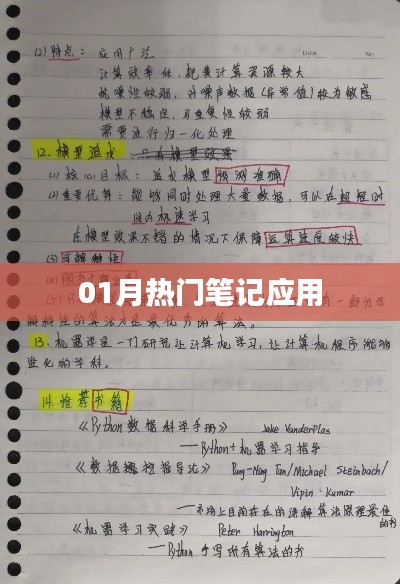 (2) 特点: 应用广泛
计算效率低,耗费计算资源较大
抗噪性较弱,对噪声数据(异常值)较为敏感
模型不稳定,可重复性较弱
需要进行归一化处理
12. 模型追求
(1) 核心目标: 追求模型预测准确
(2) 重要优势: 能够同时处理大量数据,可以在超短时
间内极速学习
在模型效果不错的情况下保障运算速度较快
(3) 可解释性
(4)
01月热门笔记应用
一部分
解释性的算法
13. 机器学习是一门研究让计算机学习,让计算机程序能够
进化的学科。
14. 推荐书籍
《Python数据科学手册》 Jake VanderPlas
——Python+机器学习指导
《数据挖掘导论》 Pang-Ning Tan/Michael Steinbach/
Vipin Kumar
——市场上目前在的讲解算法原理最佳
的书
《机器学习实践》 Peter Harrington
——Python手写所有算法的书